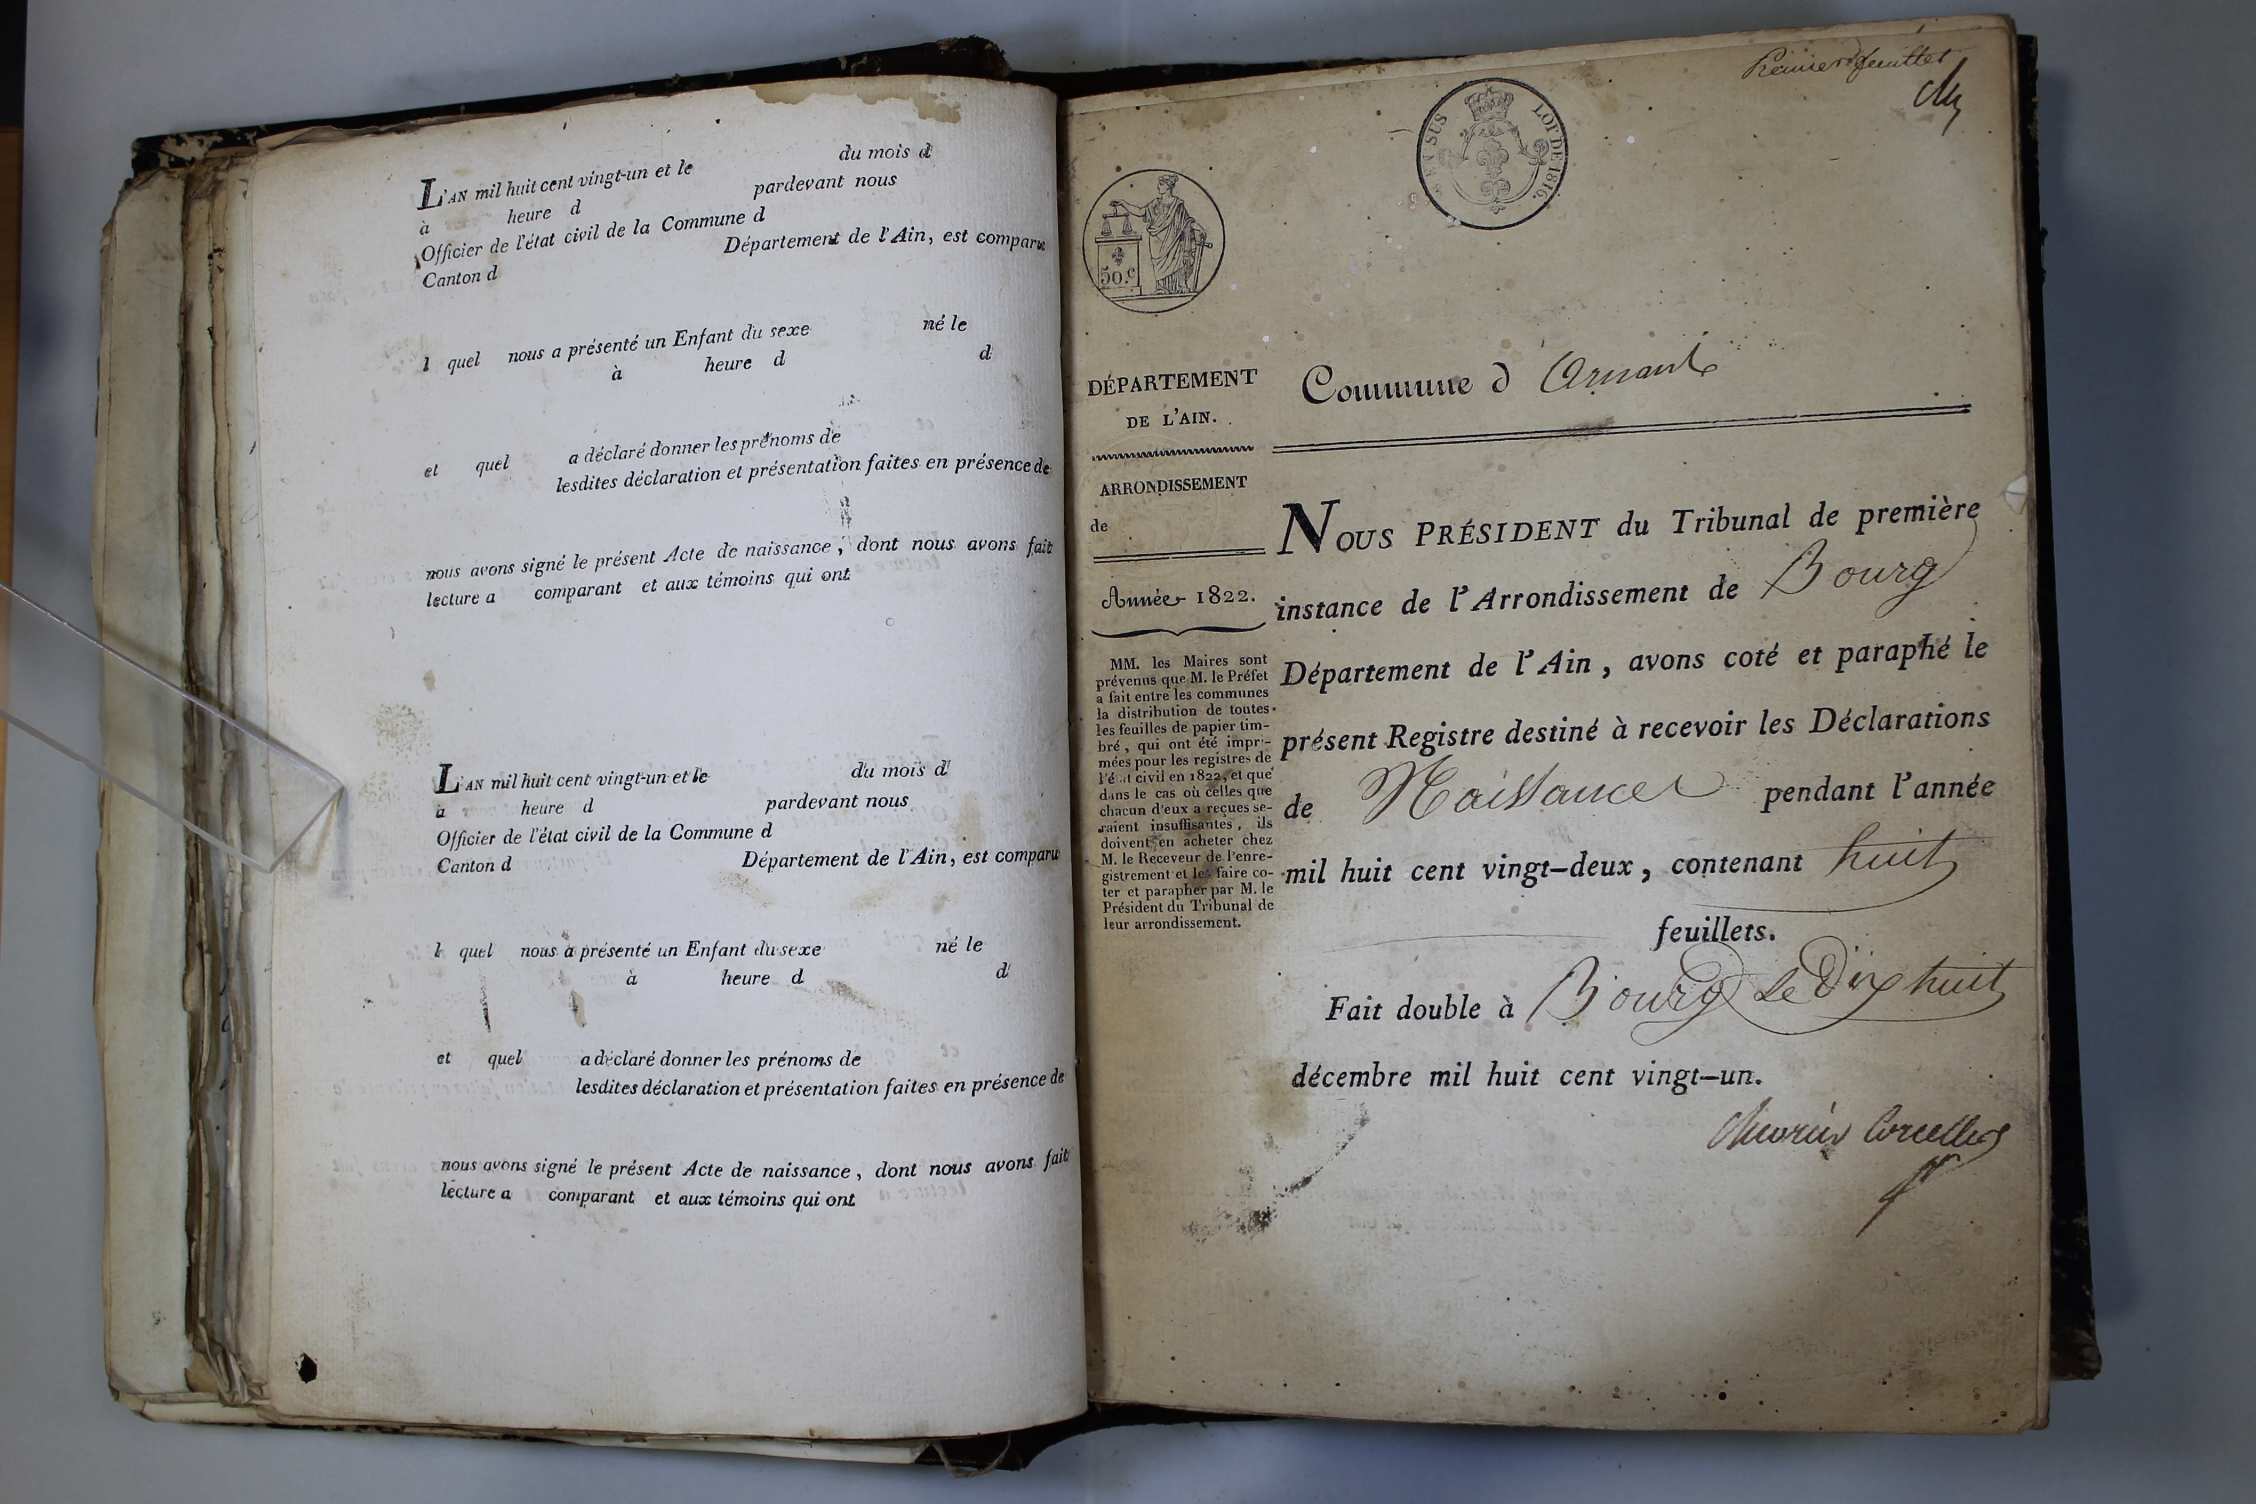 L'AN mil huit cent vingt-un et le du mois d
à heure d pardevant nous
Officier de l'état civil de la Commune d
Canton d Département de l'Ain, est comparu
l quel nous a présenté un Enfant du sexe né le
à heure d d
et quel a déclaré donner les prénoms de
lesdites déclaration et présentation faites en présence de
nous avons signé le présent Acte de naissance, dont nous avons fait
lecture a comparant et aux témoins qui ont
L'AN mil huit cent vingt-un et le du mois d
à heure d pardevant nous
Officier de l'état civil de la Commune d
Canton d Département de l'Ain, est comparu
l quel nous a présenté un Enfant du sexe né le
à heure d d
et quel a déclaré donner les prénoms de
lesdites déclaration et présentation faites en présence de
nous avons signé le présent Acte de naissance, dont nous avons fait
lecture a comparant et aux témoins qui ont
Premier feuillet
EN SUS LOI DE 1816.
50.c
DÉPARTEMENT
DE L'AIN.
ARRONDISSEMENT
de
Année 1822.
MM. les Maires sont
prévenus que M. le Préfet
a fait entre les communes
la distribution de toutes
les feuilles de papier tim-
bré, qui ont été impri-
mées pour les registres de
l'état civil en 1822, et que
dans le cas où celles que
chacun d'eux a reçues se-
raient insuffisantes, ils
doivent en acheter chez
M. le Receveur de l'enre-
gistrement et les faire co-
ter et parapher par M. le
Président du Tribunal de
leur arrondissement.
Commune d'Arnans
NOUS PRÉSIDENT du Tribunal de première
instance de l'Arrondissement de Bourg
Département de l'Ain, avons coté et paraphé le
présent Registre destiné à recevoir les Déclarations
de Naissances pendant l'année
mil huit cent vingt-deux, contenant huit
feuillets.
Fait double à Bourg le Dix huit
décembre mil huit cent vingt-un.